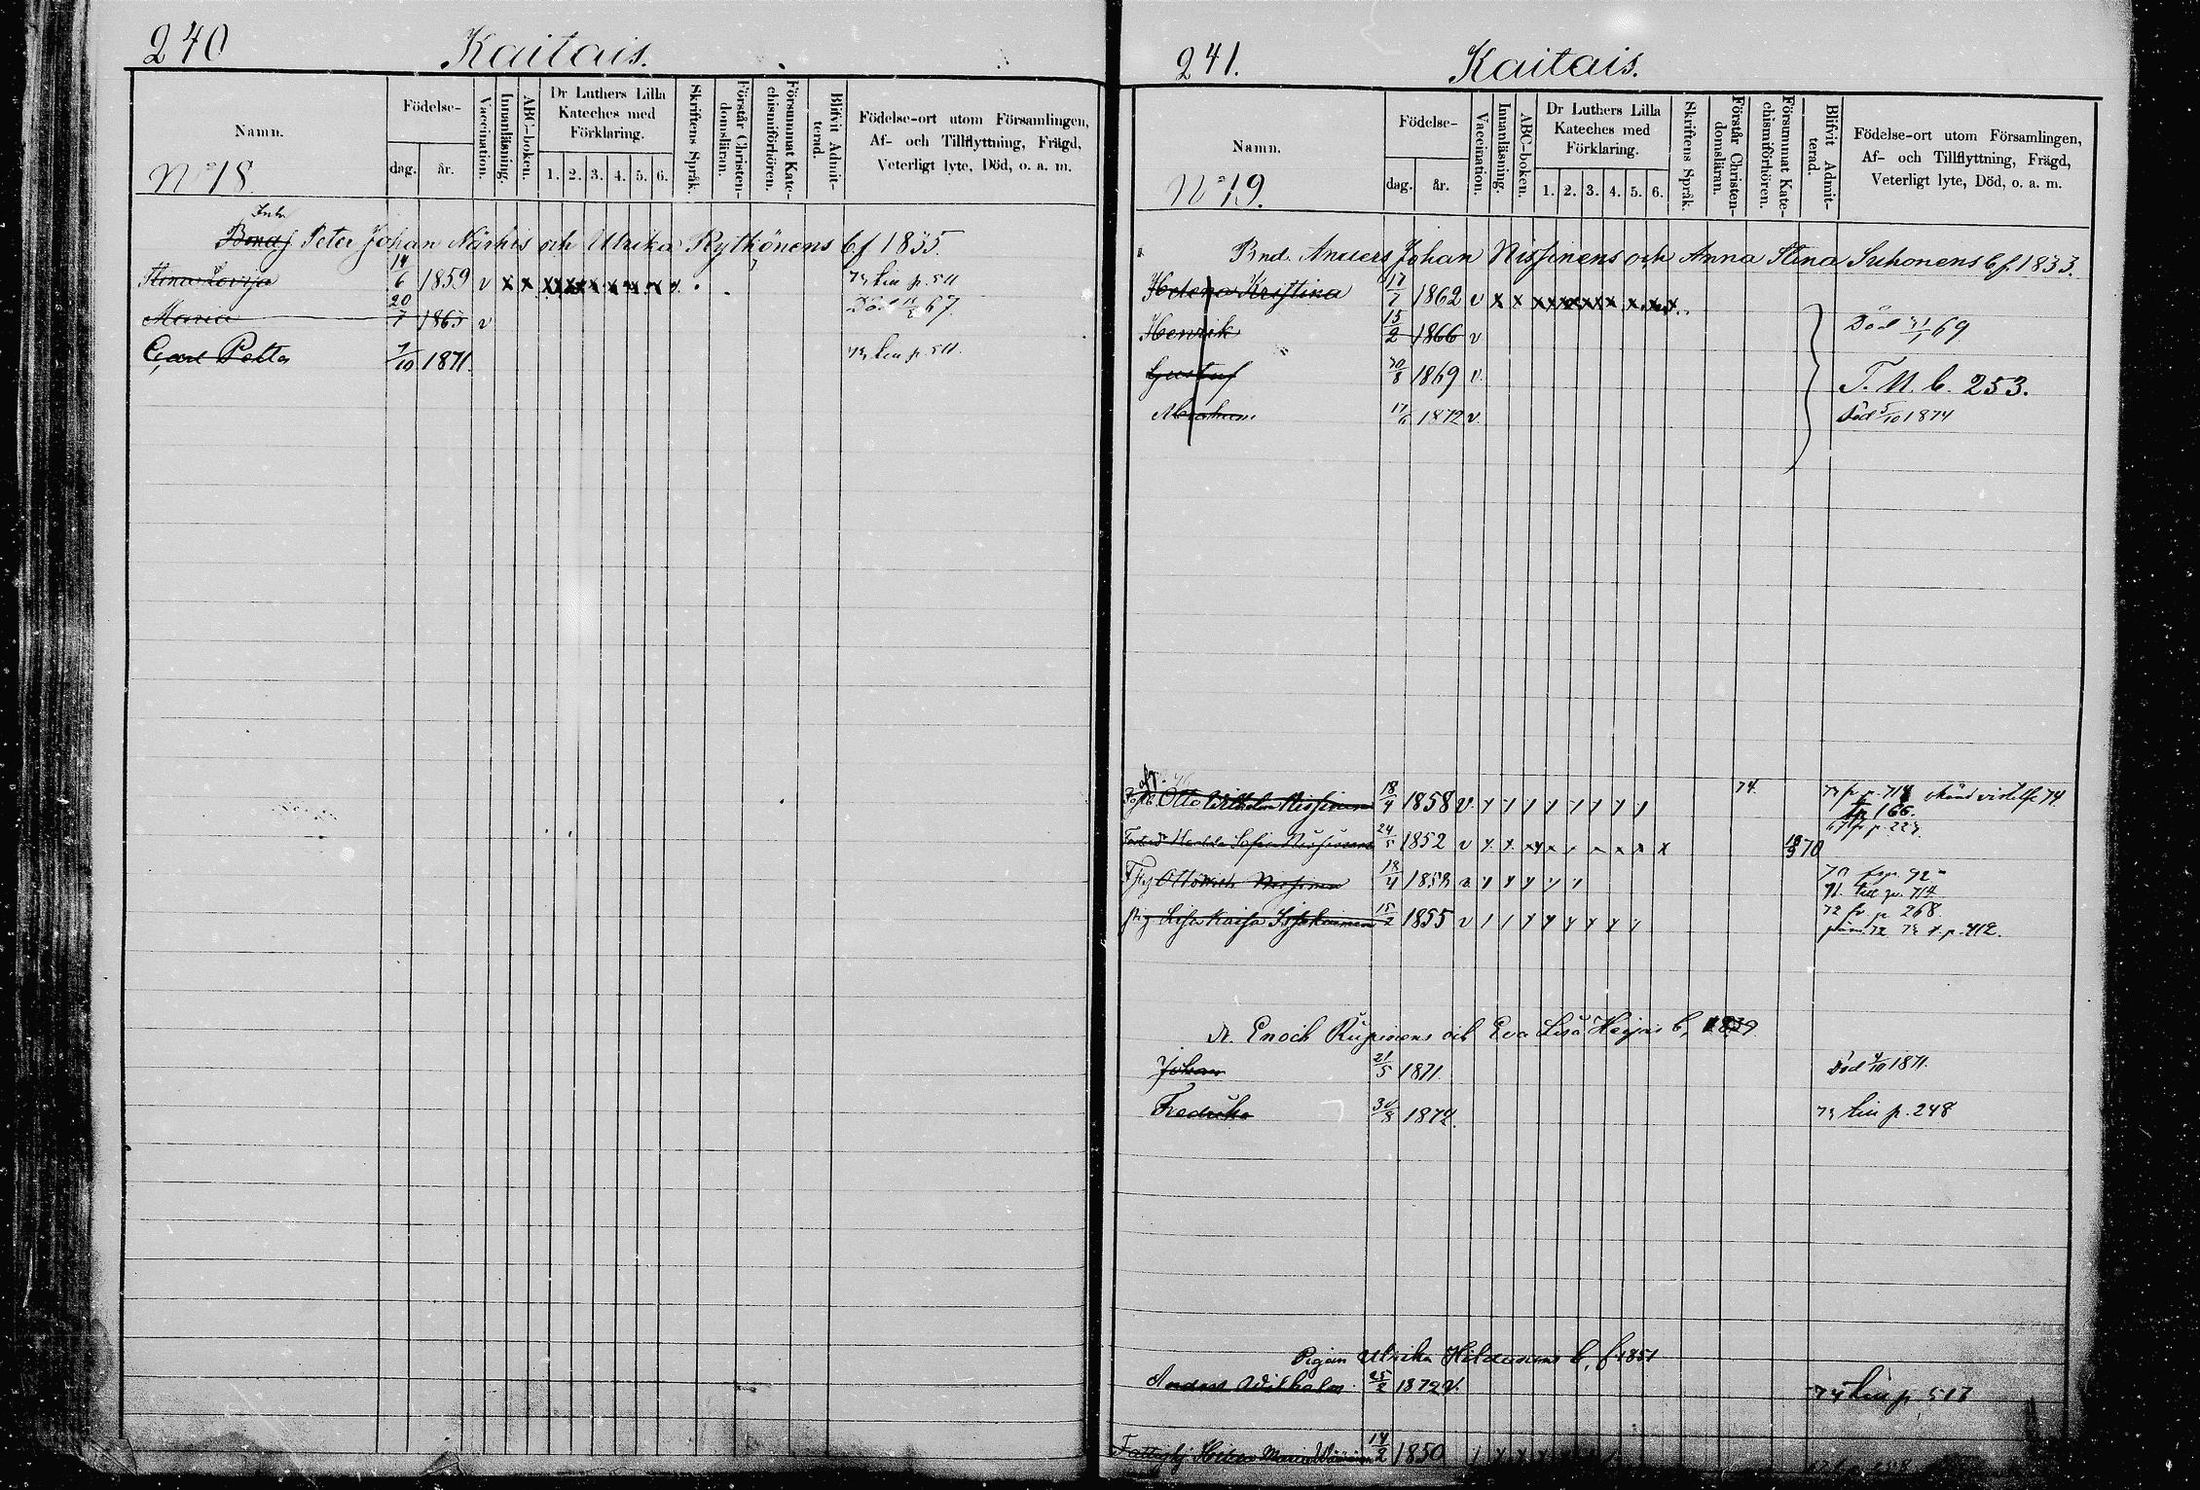 240
Kaitais.
Namn.
No 18.
Födelse-
dag.
år.
Vaccination.
Innanläsning.
ABC-boken.
Dr Luthers Lilla
Kateches med
Förklaring.
1. 2. 3. 4. 5. 6.
Skriftens Språk.
Förstår Christen-
domsläran.
Försummat Kate-
chismiförhören.
Blifvit Admit-
terad.
Födelse-ort utom Församlingen,
Af- och Tillflyttning, Frägd,
Veterligt lyte, Död, o. a. m.
Inh
Bonas Peter Johan Närhis och Ulrika Rytkönens b f 1835.
Stina Lovisa 14/6 1859 v x x x x x x x x x x
Maria 20/7 1865 v 67.
Carl Petter 7/10 1871.
241.
Kaitais.
Namn.
No 19.
Födelse-
dag.
år.
Vaccination.
Innanläsning.
ABC-boken.
Dr Luthers Lilla
Kateches med
Förklaring.
1. 2. 3. 4. 5. 6.
Skriftens Språk.
Förstår Christen-
domsläran.
Försummat Kate-
chismiförhören.
Blifvit Admit-
terad.
Födelse-ort utom Församlingen,
Af- och Tillflyttning, Frägd,
Veterligt lyte, Död, o. a. m.
Bnd. Anders Johan Nissinens och Anna Stina Suhonens b f. 1833.
Helena Kristina 17/7 1862 v x x x x x x x x x x
Henrik 15/2 1866 v Död 69
Gustaf 30/8 1869 v. T. N. b. 253.
Abraham. 17/6 1872 v. Död 5/10 1874
Otto Wilhelm Nissinen 18/4 1858 v. 74. p. 714 74
p 166.
Sofia Nissinen 24/5 1852 v 70
Otto Nissinen 18/4 1858 p. 92
71. till p. 714
Lisa Kaisa 15/2 1855 v 72 fr p 268.
72 73 t. p. 412.
Enoch Rupinens och Eva Lisa b, 1839.
Johan 21/5 1871. Död 9/10 1871.
Fredrika 30/8 1872. 73 p. 248
Pigan Ulrika b, f 1851
Anders Wilhelm 25/2 1872 v. 74 p. 517
Maria 14/2 1850